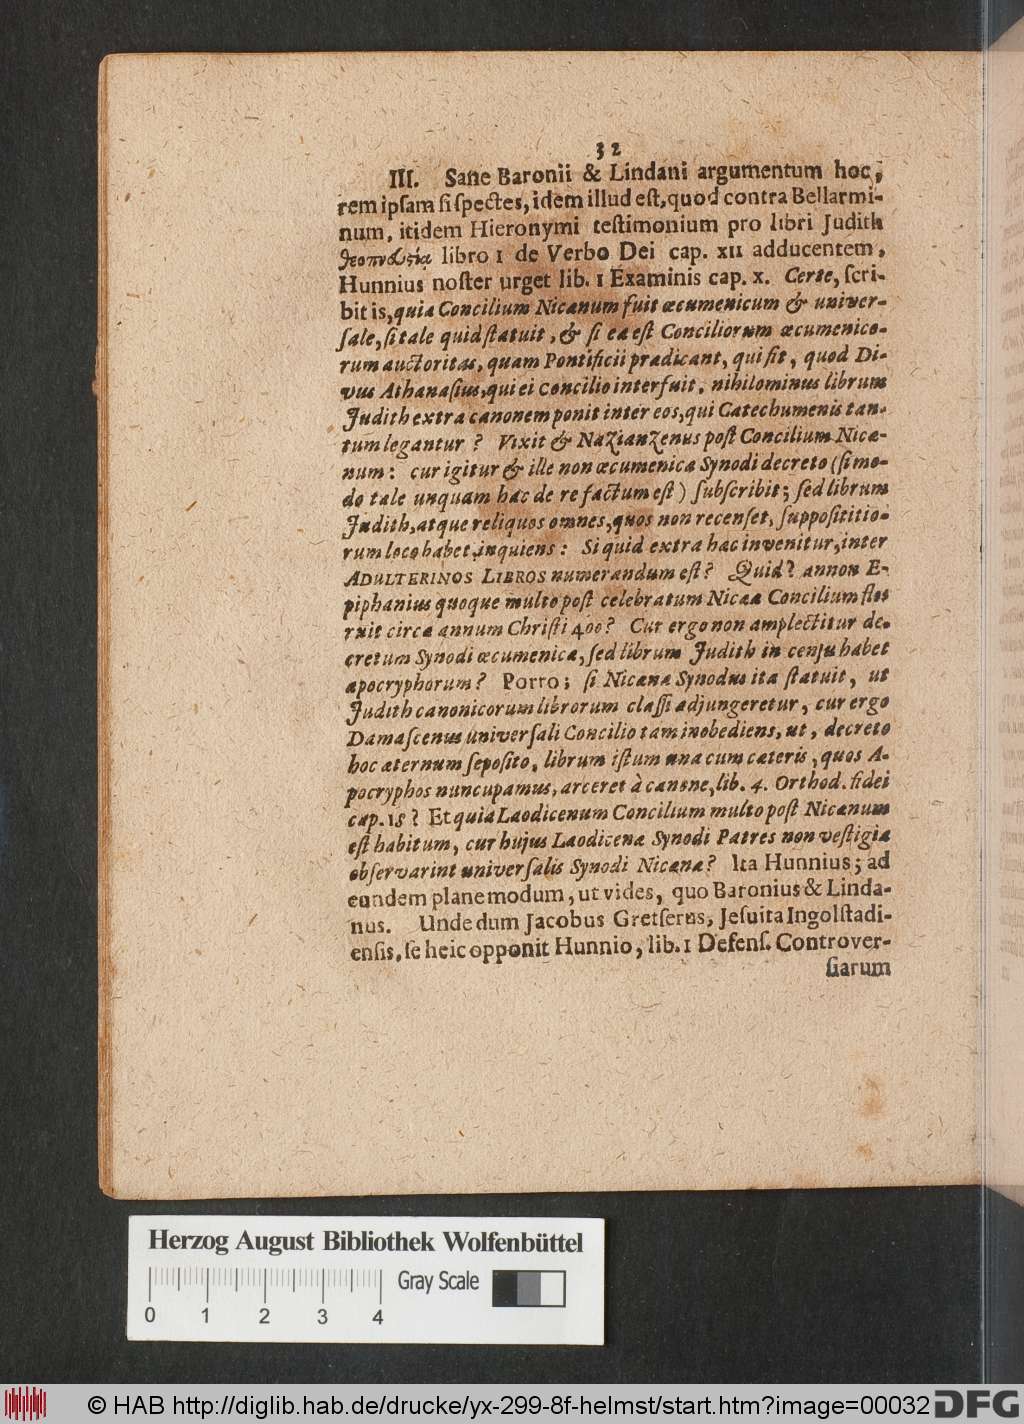 32
III. Sane Baronii & Lindani argumentum hoc,
rem ipsam si spectes, idem illud est, quod contra Bellarmi-
num, itidem Hieronymi testimonium pro libri Judith
θεοπνευστίᾳ libro 1 de Verbo Dei cap. XII adducentem,
Hunnius noster urget lib. 1 Examinis cap. X. Certe, scri-
bit is, quia Concilium Nicænum fuit œcumenicum & univer-
sale, si tale quid statuit, & si ea est Conciliorum œcumenico-
rum auctoritas, quam Pontificii prædicant, qui fit, quod Di-
vus Athanasius, qui ei concilio interfuit, nihilominus librum
Judith extra canonem ponit inter eos, qui Catechumenis tan-
tum legantur? Vixit & Nazianzenus post Concilium Nicæ-
num: cur igitur & ille non œcumenicæ Synodi decreto (si mo-
do tale unquam hac de re factum est) subscribit; sed librum
Judith, atque reliquos omnes, quos non recenset, supposititio-
rum loco habet, inquiens: Si quid extra hæc invenitur, inter
ADULTERINOS LIBROS numerandum est? Quid? annon E-
piphanius quoque multo post celebratum Nicææ Concilium flo-
ruit circa annum Christi 400? Cur ergo non amplectitur de-
cretum Synodi œcumenicæ, sed librum Judith in censu habet
apocryphorum? Porro; si Nicæna Synodus ita statuit, ut
Judith canonicorum librorum classi adjungeretur, cur ergo
Damascenus universali Concilio tam inobediens, ut, decreto
hoc æternum seposito, librum istum una cum cæteris, quos A-
pocryphos nuncupamus, arceret à canone, lib. 4. Orthod. fidei
cap. 18? Et quia Laodicenum Concilium multo post Nicænum
est habitum, cur hujus Laodicenæ Synodi Patres non vestigia
observarint universalis Synodi Nicænæ? Ita Hunnius; ad
eundem plane modum, ut vides, quo Baronius & Linda-
nus. Unde dum Jacobus Gretserus, Jesuita Ingolstadi-
ensis, se heic opponit Hunnio, lib. 1 Defens. Controver-
siarum
Herzog August Bibliothek Wolfenbüttel
Gray Scale
0 1 2 3 4
© HAB http://diglib.hab.de/drucke/yx-299-8f-helmst/start.htm?image=00032
DFG